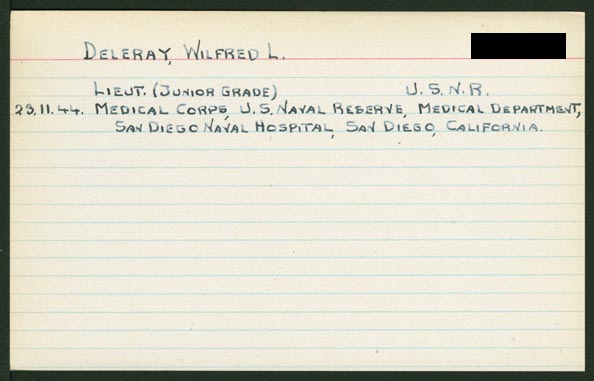 DELERAY, WILFRED L.
LIEUT. (JUNIOR GRADE) U.S.N.R.
23.11.44. MEDICAL CORPS, U.S. NAVAL RESERVE, MEDICAL DEPARTMENT,
SAN DIEGO NAVAL HOSPITAL, SAN DIEGO, CALIFORNIA.